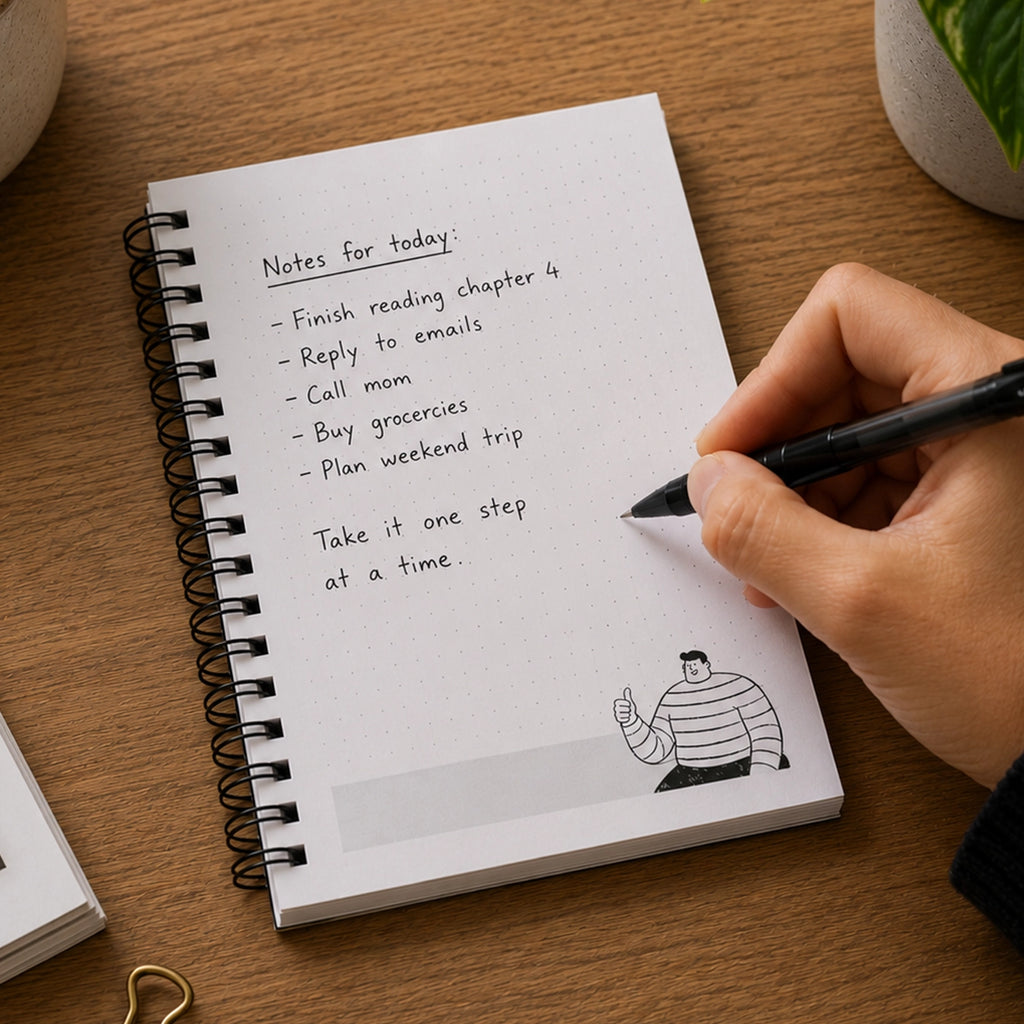 Notes for today:
- Finish reading chapter 4
- Reply to emails
- Call mom
- Buy grocercies
- Plan weekend trip
Take it one step
at a time.